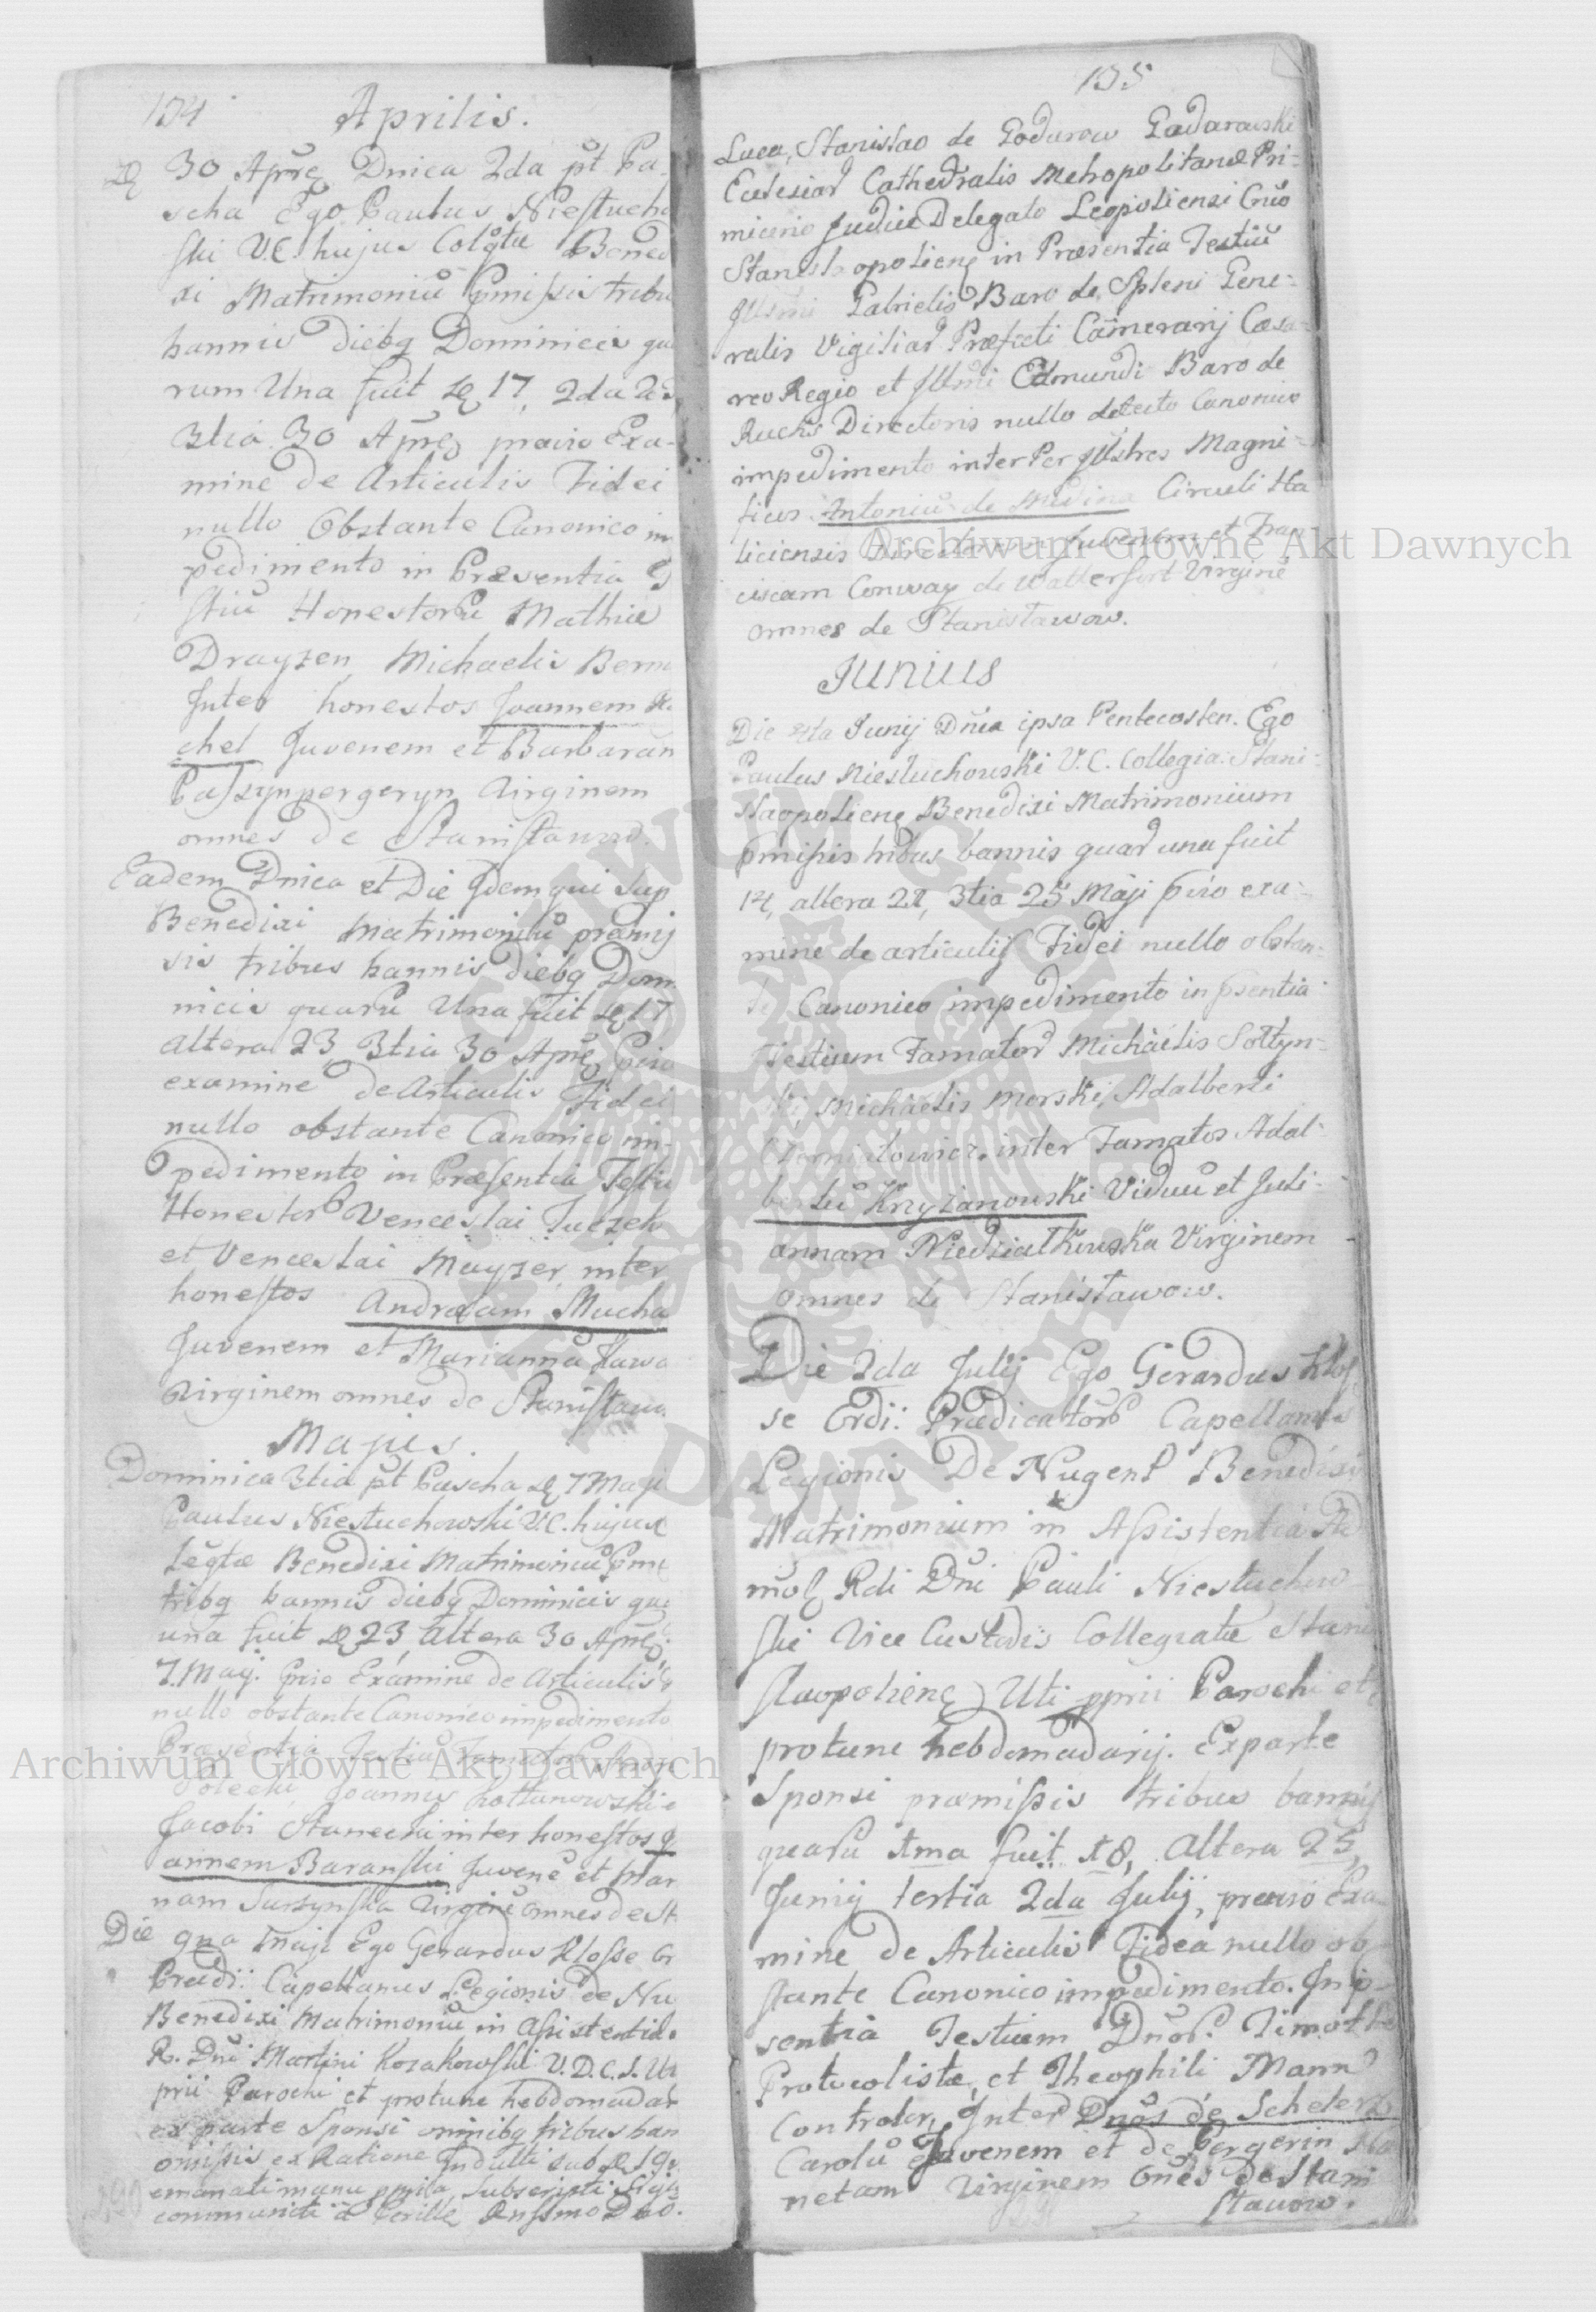 134 Aprilis.
30 Apr̃ę Dnica 2da pt Pa-
scha Ego Paulus Niestucho
ski V.C. hujus Colgtæ Bened
xi Matrimoniũ p̃missis tribu
bannis diebq Dominicis qua
rum Una fuit 17, 2da 23
3tia 30 Apr̃ę prævio Exa-
mine de Articulis Fidei
nullo Obstante Canonico im
pedimento in Præsentia
stiũ Honestorũ Mathiæ
Drayzen, Michaelis
Inter honestos Joannem
chel Juvenem et Barbaram
Virginem
omnes de Stanislawow.
Eadem Dnica et Die Idem qui sup
Benedixi Matrimoniũ præmis
sis tribus bannis diebq Domi
nicis quarũ Una fuit 17
altera 23 3tia 30 Apr̃ę p̃vio
examine de Articulis Fidei
nullo obstante Canonico im-
pedimento in Præsentia Testiũ
Honestor Venceslai Tuczek
et Venceslai Mayzer inter
honestos Andream Mucha
Juvenem et Mariannã
Virginem omnes de Stanislawo
Majus.
Dominica 3tia pt Pascha 7 Maji
Paulus Niestuchowski V.C. hujus
legtæ Benedixi Matrimoniũ
tribq bannis diebq Dominicis qua
una fuit 23, altera 30 Apr̃ę
7. Maij. p̃vio Examine de Articulis
nullo obstante Canonico impedimento
Præsentia Testiũ
Joannis
Jacobi Staneck inter honestos Jo
annem Baranski Juvenẽ et Mar
nam Virginẽ omnes de St
Die 9na Maji Ego Gerardus Klosse Or
Prædi: Capellanus Legionis de Nu
Benedixi Matrimoniũ in Assistentia
R. Dni Martini Kozakowski V.D.C.S. Uti
prii Parochi et protunc hebdomadar
ex parte Sponsi omnibq tribus ban
omissis ex Ratione Indulti sub
emanati manu ppria subscripti Sigi
communiti a Perille Rnssmo Dno.
135
Luca, Stanislao de Godurow Gadarawski
Ecclesiar Cathedralis Metropolitanæ Pri-
micerio Judice Delegato Leopoliensi Cnco
Stanislaopolienę in Præsentia Testiũ
Illstmi Gabrielis Baro de Spleni Gene-
ralis Vigiliar Præfecti Camerarij Cæsa-
reo Regio et Illmi Edmundi Baro de
Ruchs Directoris nullo detecto Canonico
impedimento inter Per Illstres Magni-
ficos Antoniũ de Medina Circuli Ha
liciensis Directorem Juvenem et Fran
ciscam Conway de Watterfort Virginẽ
omnes de Stanislawow.
Junius
Die 4ta Junij Dnica ipsa Pentecosten. Ego
Paulus Niestuchowski V.C. Collegia: Stani-
slaopolienę Benedixi Matrimonium
p̃missis tribus bannis quar una fuit
14, altera 21, 3tia 25 Maji p̃vio exa-
mine de articulis Fidei nullo obstan-
te Canonico impedimento in p̃sentia
Testium Famator Michaelis Soltyn-
ski, Michaelis Morski, Adalberti
inter Famatos Adal-
bertũ Krzyzanowski Viduũ et Juli-
annam Niedzialkowska Virginem
omnes de Stanislawow.
Die 2da Julij Ego Gerardus Klos
se Ordi: Prædicator Capellanus
Legionis De Nugent Benedixi
Matrimonium in Assistentia Ad
Rdi Dni Pauli Niestuchow
ski Vice Custodis Collegiatæ Stani
slaopolienę Uti pprii Parochi et
protunc hebdomadarij. Exparte
Sponsi præmissis tribus bannis
quarũ 1ma fuit 18, Altera 25,
Junij tertia 2da Julij, prævio Exa
mine de Articulis Fidea nullo ob
stante Canonico impedimento. In p-
sentia Testium Dnor. Timothe
Protocolistæ, et Theophili Mann
Controlor, Inter Dnos de Scheler
Carolũ Juvenem et de Pergerin
netam Virginem Omes de Stani
slawow.
Archiwum Główne Akt Dawnych
Archiwum Główne Akt Dawnych
ARCHIWUM GŁÓWNE AKT DAWNYCH